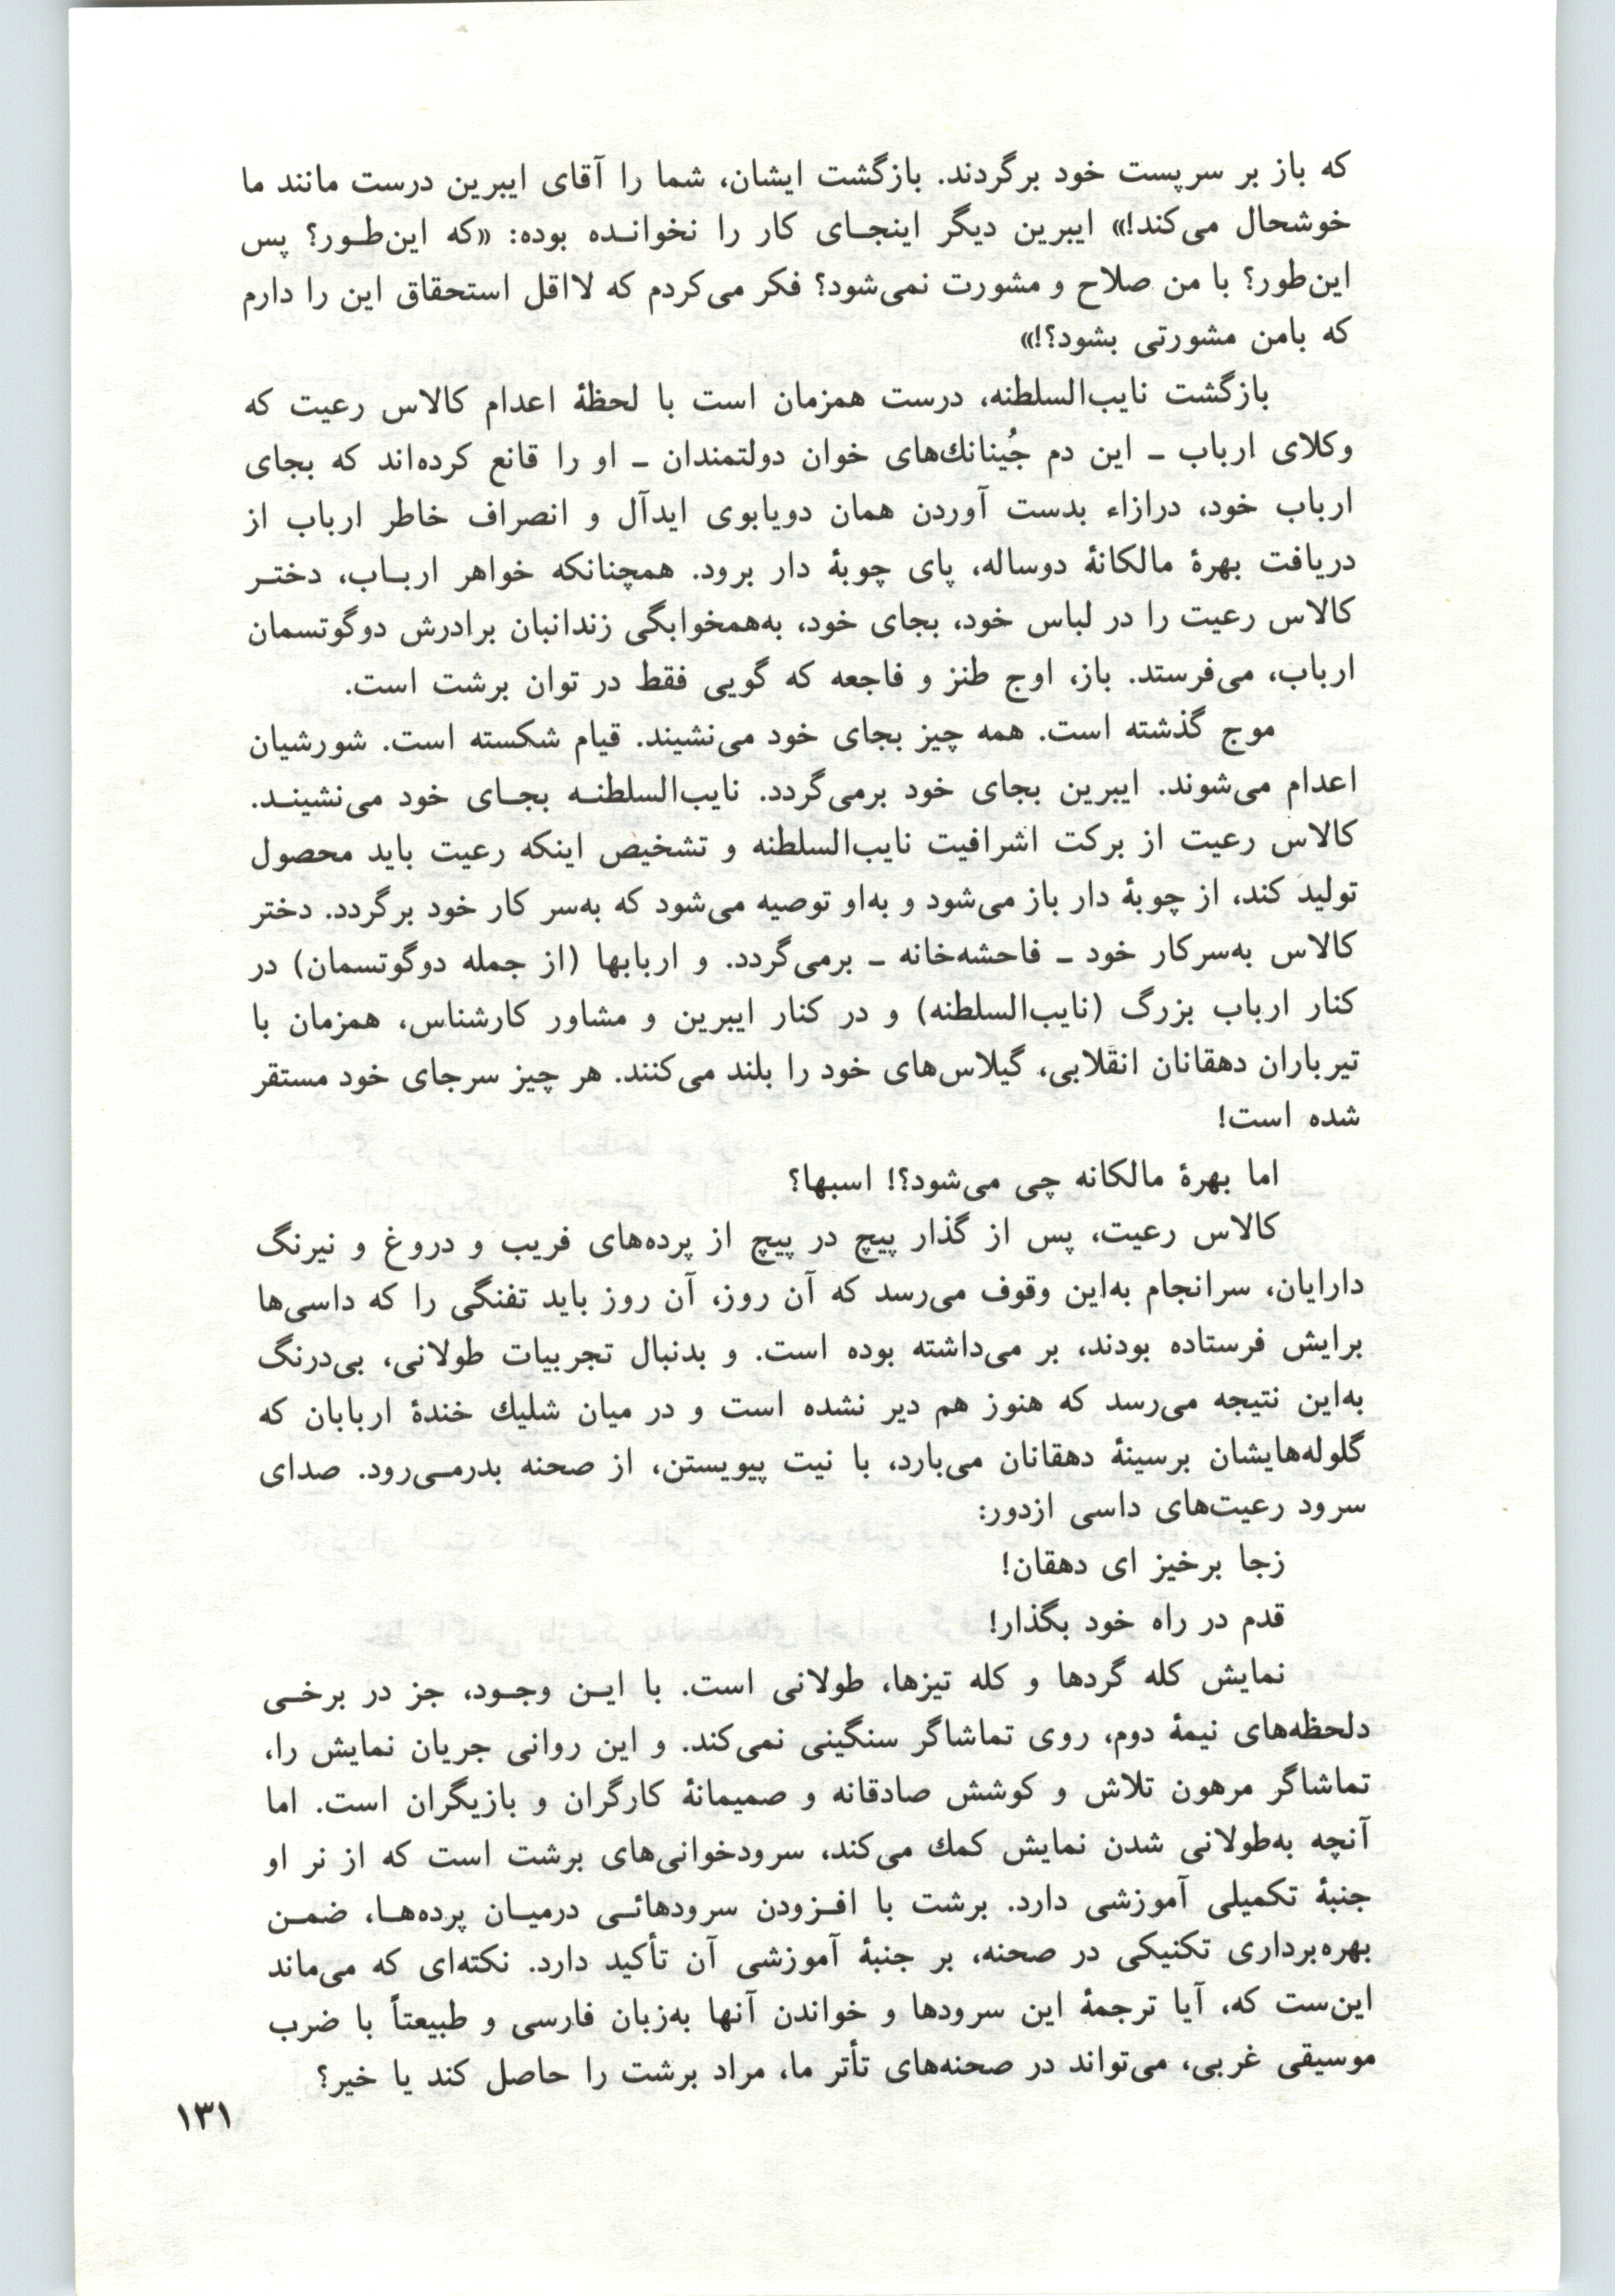 که باز بر سرپست خود برگردند. بازگشت ایشان، شما را آقای ایبرین درست مانند ما
خوشحال می‌کند!» ایبرین دیگر اینجـای کار را نخوانـده بوده: «که این‌طـور؟ پس
این‌طور؟ با من صلاح و مشورت نمی‌شود؟ فکر می‌کردم که لااقل استحقاق این را دارم
که بامن مشورتی بشود؟!»
بازگشت نایب‌السلطنه، درست همزمان است با لحظهٔ اعدام کالاس رعیت که
وکلای ارباب ـ این دم جُینانك‌های خوان دولتمندان ـ او را قانع کرده‌اند که بجای
ارباب خود، درازاء بدست آوردن همان دویابوی ایدآل و انصراف خاطر ارباب از
دریافت بهرهٔ مالکانهٔ دوساله، پای چوبهٔ دار برود. همچنانکه خواهر اربـاب، دختـر
کالاس رعیت را در لباس خود، بجای خود، به‌همخوابگی زندانبان برادرش دوگوتسمان
ارباب، می‌فرستد. باز، اوج طنز و فاجعه که گویی فقط در توان برشت است.
موج گذشته است. همه چیز بجای خود می‌نشیند. قیام شکسته است. شورشیان
اعدام می‌شوند. ایبرین بجای خود برمی‌گردد. نایب‌السلطنـه بجـای خود می‌نشینـد.
کالاس رعیت از برکت اشرافیت نایب‌السلطنه و تشخیص اینکه رعیت باید محصول
تولید کند، از چوبهٔ دار باز می‌شود و به‌او توصیه می‌شود که به‌سر کار خود برگردد. دختر
کالاس به‌سرکار خود ـ فاحشه‌خانه ـ برمی‌گردد. و اربابها (از جمله دوگوتسمان) در
کنار ارباب بزرگ (نایب‌السلطنه) و در کنار ایبرین و مشاور کارشناس، همزمان با
تیرباران دهقانان انقلابی، گیلاس‌های خود را بلند می‌کنند. هر چیز سرجای خود مستقر
شده است!
اما بهرهٔ مالکانه چی می‌شود؟! اسبها؟
کالاس رعیت، پس از گذار پیچ در پیچ از پرده‌های فریب و دروغ و نیرنگ
دارایان، سرانجام به‌این وقوف می‌رسد که آن روز، آن روز باید تفنگی را که داسی‌ها
برایش فرستاده بودند، بر می‌داشته بوده است. و بدنبال تجربیات طولانی، بی‌درنگ
به‌این نتیجه می‌رسد که هنوز هم دیر نشده است و در میان شلیك خندهٔ اربابان که
گلوله‌هایشان برسینهٔ دهقانان می‌بارد، با نیت پیویستن، از صحنه بدرمـی‌رود. صدای
سرود رعیت‌های داسی ازدور:
زجا برخیز ای دهقان!
قدم در راه خود بگذار!
نمایش کله گردها و کله تیزها، طولانی است. با ایـن وجـود، جز در برخـی
دلحظه‌های نیمهٔ دوم، روی تماشاگر سنگینی نمی‌کند. و این روانی جریان نمایش را،
تماشاگر مرهون تلاش و کوشش صادقانه و صمیمانهٔ کارگران و بازیگران است. اما
آنچه به‌طولانی شدن نمایش کمك می‌کند، سرودخوانی‌های برشت است که از نر او
جنبهٔ تکمیلی آموزشی دارد. برشت با افـزودن سرودهائـی درمیـان پرده‌هـا، ضمـن
بهره‌برداری تکنیکی در صحنه، بر جنبهٔ آموزشی آن تأکید دارد. نکته‌ای که می‌ماند
این‌ست که، آیا ترجمهٔ این سرودها و خواندن آنها به‌زبان فارسی و طبیعتاً با ضرب
موسیقی غربی، می‌تواند در صحنه‌های تأتر ما، مراد برشت را حاصل کند یا خیر؟
۱۳۱